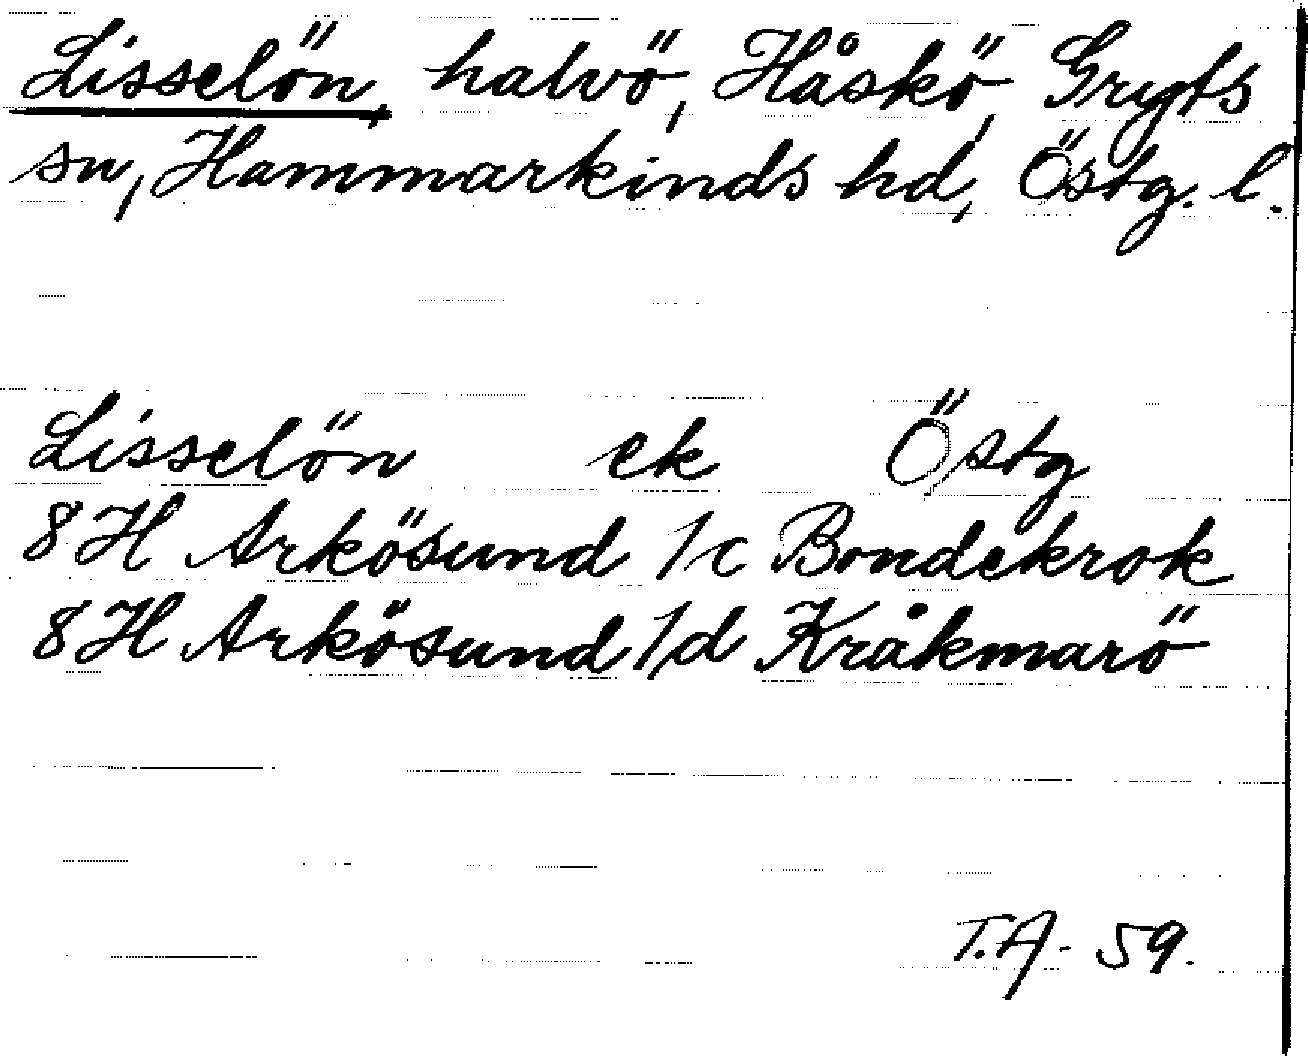 Lisselön, halvö, Håskö, Gryts
sn, Hammarkinds hd, Östg. l.
Lisselön ek Östg
8H Arkösund 1c Bondekrok
8H Arkösund 1d Kråkmarö
T.A. 59.